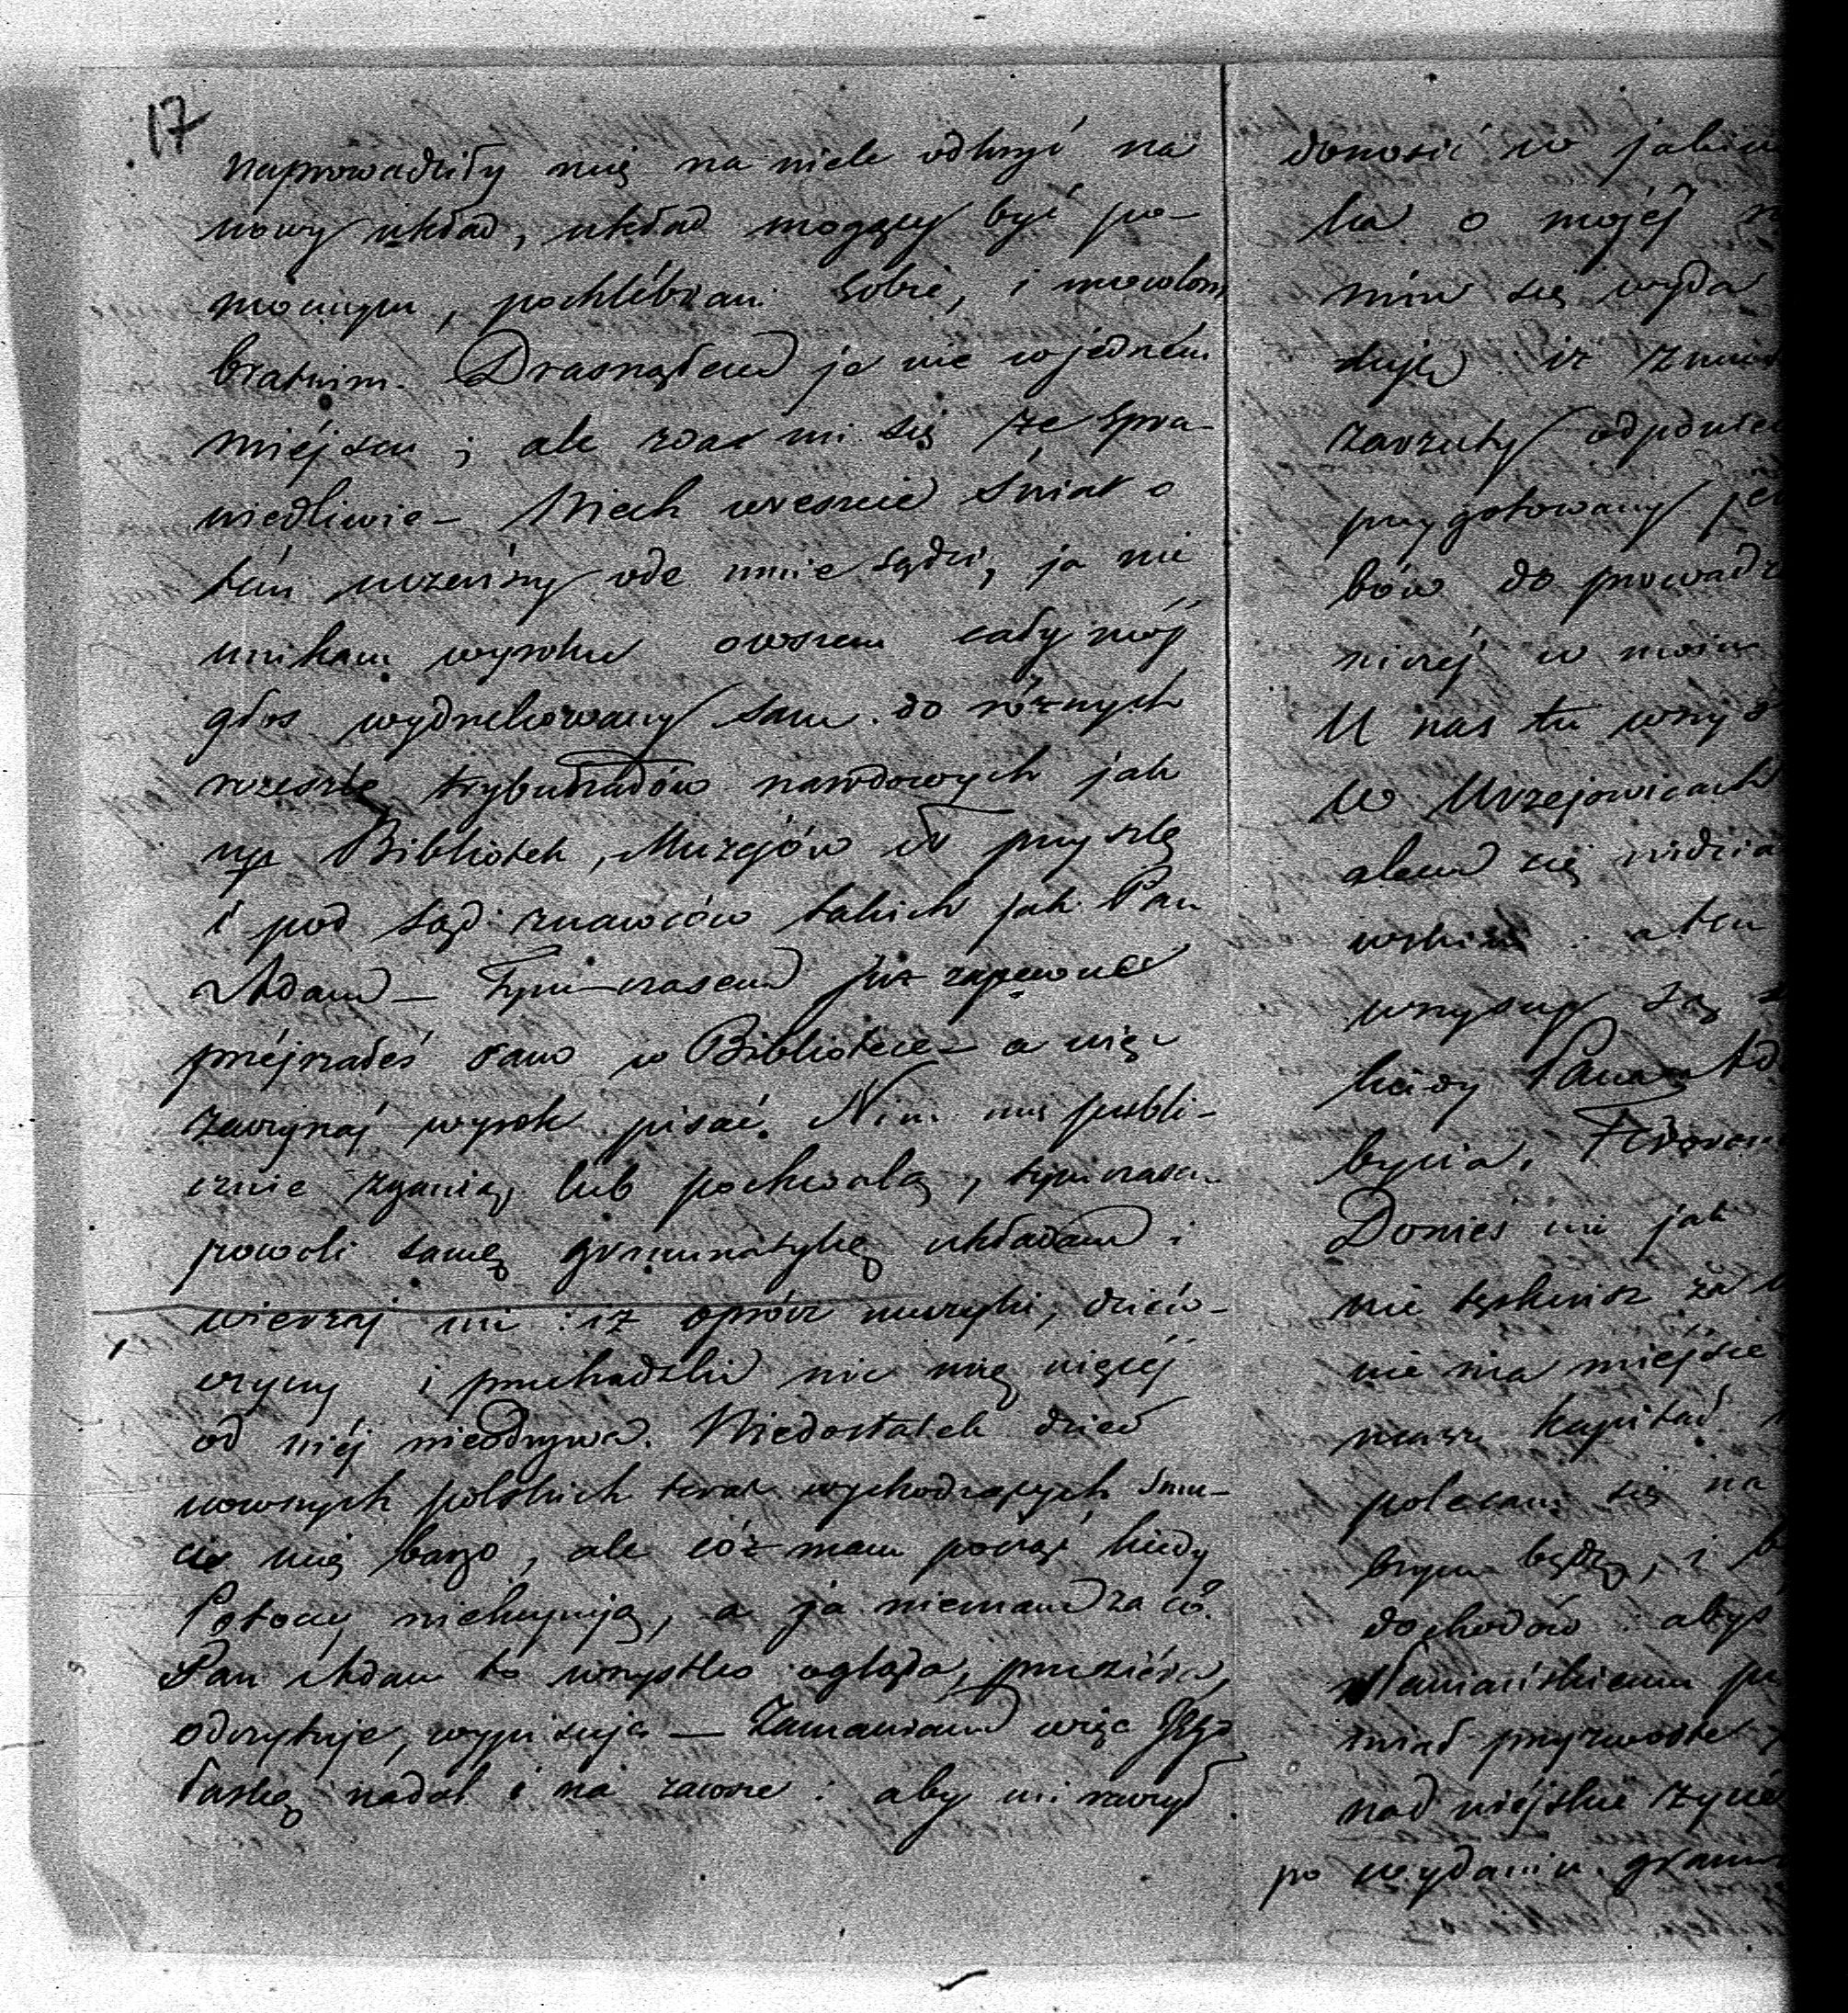 17
naprowadziły mię na wiele odkryć na
nowy układ, układ mogący być po-
mocnym, pochlébiam sobie, i mowom
bratnim. Drasnąłem je nie w jedném
miejscu; ale zdaє mi się że spra-
wiedliwie – Niech wreszcie świat o
tém uczeńszy ode mnie sądzi, ja nie
unikam wyroku owszem cały mój
głos wydrukowany sam do różnych
rozeszlę trybunałów narodowych jak
np Bibliotek, Muzejów i przyszlę
i pod sąd znawców takich jak Pan
Adam – Tymczasem już zapewne
przéjrzałeś sam w Bibliotece – a więc
zaczynaj wyrok pisać. Nim mię publi-
cznie zganią, lub pochwalą, tymczasem
powoli samę grammatykę układam i
wierzaj mi: iż oprócz muzyki, dziéw-
czyny i przechadzki nic mię więcéj
od niéj nieodrywa. Niedostatek dzieł
nowszych polskich teraz wychodzących smu-
ci mię barzo, ale cóż mam począć kiedy
Potoccy niekupują, a ja niemam za co.
Pan Adam to wszystko ogląda, przeziéra,
odczytuje, wypisuje – Zamawiam więc Jego
łaskę nadal i na zawsze: aby mi raczył
donosić w jakim
ka o mojéj
się wyda
duje iż
zarzuty
przygotowany
bów do prowadz
niczéj w moim
U nas tu wszys
w Urzejowicach
alem się widzia
wskim a ten
wszyscy są
kiedy Pana Ad
bycia.
Donieś mi jak
nie tęsknisz za
nie ma miéjsce
masz kapitał
polecam się na
brym będę, i
dochodów: abyś
Słowiańskiemu
miał przyzwoite
nad miéjskie życie
po wydaniu gram